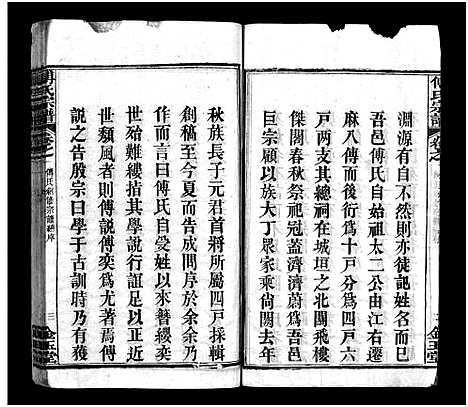 傅氏宗譜
卷之
淵源有自不然則亦徒記姓名而
吾邑傅氏自始祖太二公由江右遷
麻八傳而後衍爲十戶分爲四戶六
戶兩支其總祠在城垣之北閣飛樓
層耸春秋祭祀冠蓋濟濟蔚爲鉅
觀固以族大丁眾家乘尚闕去年
秋族長子元君首將所屬四戶採輯
創稿至今歲而告成問序於余余乃
作而言曰傅氏自受姓以來簪纓奕
世殆難縷指其學說行誼足以正近
世頹風者則傅說傅奕爲尤著焉傅
說之告殷宗曰學于古訓時乃有獲
傅氏宗譜
卷之
傅氏創修宗譜序
三
金玉堂